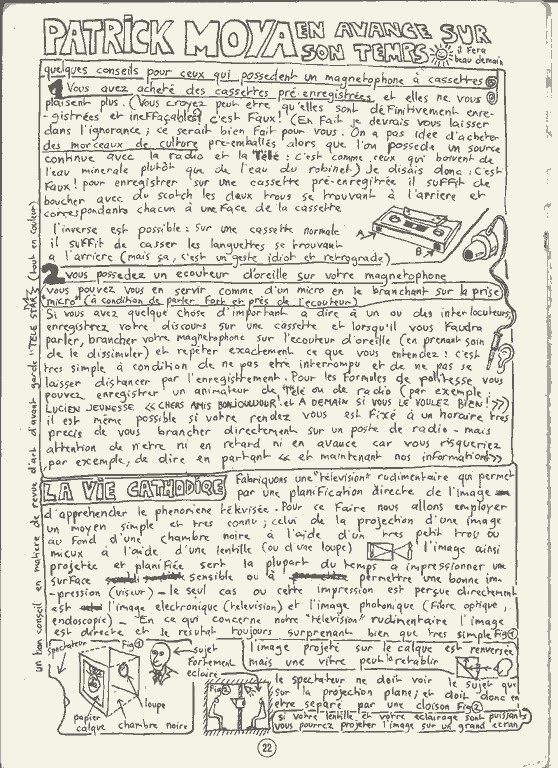 PATRICK MOYA EN AVANCE SUR
SON TEMPS il fera
beau demain
quelques conseils pour ceux qui possedent un magnetophone à cassettes
1 Vous avez acheté des cassettes pré-enregistrées et elles ne vous
plaisent plus. (Vous croyez peut etre qu'elles sont définitivement enre-
-gistrées et ineffaçables! c'est Faux! (En fait je devrais vous laisser
dans l'ignorance; ce serait bien fait pour vous. On a pas idée d'acheter
des morceaux de culture pré-emballés alors que l'on possede un source
continue avec la radio et la Télé: c'est comme ceux qui boivent de
l'eau minerale plutôt que de l'eau du robinet) Je disais donc: C'est
Faux! pour enregistrer sur une cassette pré-enregitrée il suffit de
boucher avec du scotch les deux trous se trouvant à l'arriere et
correspondants chacun à une face de la cassette
l'inverse est possible: Sur une cassette normale
il suffit de casser les languettes se trouvant
a l'arriere (mais sa, c'est un geste idiot et retrograde)
A B
2 vous possedez un ecouteur d'oreille sur votre magnetophone
vous pouvez vous en servir comme d'un micro en le branchant sur la prise
"micro" (à condition de parler fort et près de l'ecouteur)
Si vous avez quelque chose d'important a dire à un ou des interlocuteurs,
enregistrez votre discours sur une cassette et lorsqu'il vous faudra
parler, brancher votre magnetophone sur l'ecouteur d'oreille (en prenant soin
de le dissimuler) et repéter exactement ce que vous entendez: c'est
tres simple à condition de ne pas etre interrompu et de ne pas se
laisser distancer par l'enregistrement. Pour les formules de politesse vous
pouvez enregistrer un animateur de Télé ou de radio (par exemple:
LUCIEN JEUNESSE « CHERS AMIS BONJOUUOUR! et A DEMAIN SI VOUS LE VOULEZ BIEN! »)
il est même possible si votre rendez vous est fixé à un horaire très
precis de vous brancher directement sur un poste de radio - mais
attention de n'etre ni en retard ni en avance car vous risqueriez
par exemple, de dire en partant « et maintenant nos informations »
LA VIE CATHODIQUE
Fabriquons une "télévision" rudimentaire qui permet
par une planification directe de l'image
d'apprehender le phenomene télévisée. Pour ce faire nous allons employer
un moyen simple et tres connu; celui de la projection d'une image
au fond d'une chambre noire à l'aide d'un tres petit trou ou
mieux à l'aide d'une lentille (ou d'une loupe) l'image ainsi
projetée et planifiée sert la plupart du temps a impressionner une
surface sensible ou à permettre une bonne im-
-pression (viseur) - le seul cas ou cette impression est perçue directement
est l'image electronique (television) et l'image photonique (fibre optique,
endoscopie) - En ce qui concerne notre "télévision" rudimentaire l'image
est directe et le resultat toujours surprenant bien que tres simple Fig①
spectateur Fig① sujet
fortement
eclaire
loupe
papier
calque chambre noire
l'image projeté sur le calque est renversée
mais une vitre peut la retablir
Fig②
le spectateur ne doit voir le sujet que
sur la projection plane; et doit donc en
etre separé par une cloison Fig②
si votre lentille et votre eclairage sont puissants
vous pourrez projeter l'image sur un grand ecran
un bon conseil en matière de revue d'art d'avant garde: "TELE STAR" (tout en couleur)
22